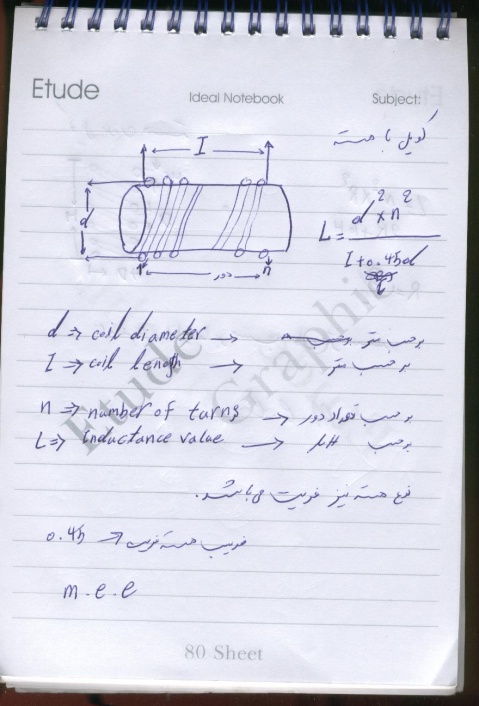 Etude Ideal Notebook Subject:
کویل با هسته
I
d
L = d² × n² / I + 0.45d
1 دور n
d => coil diameter → برحسب متر
I => coil length → برحسب متر
n => number of turns → برحسب تعداد دور
L => inductance value → برحسب μH
نوع هسته نیز فریت می باشد.
0.45 → ضریب هسته فریت
m.e.e
Etude Graphic
80 Sheet